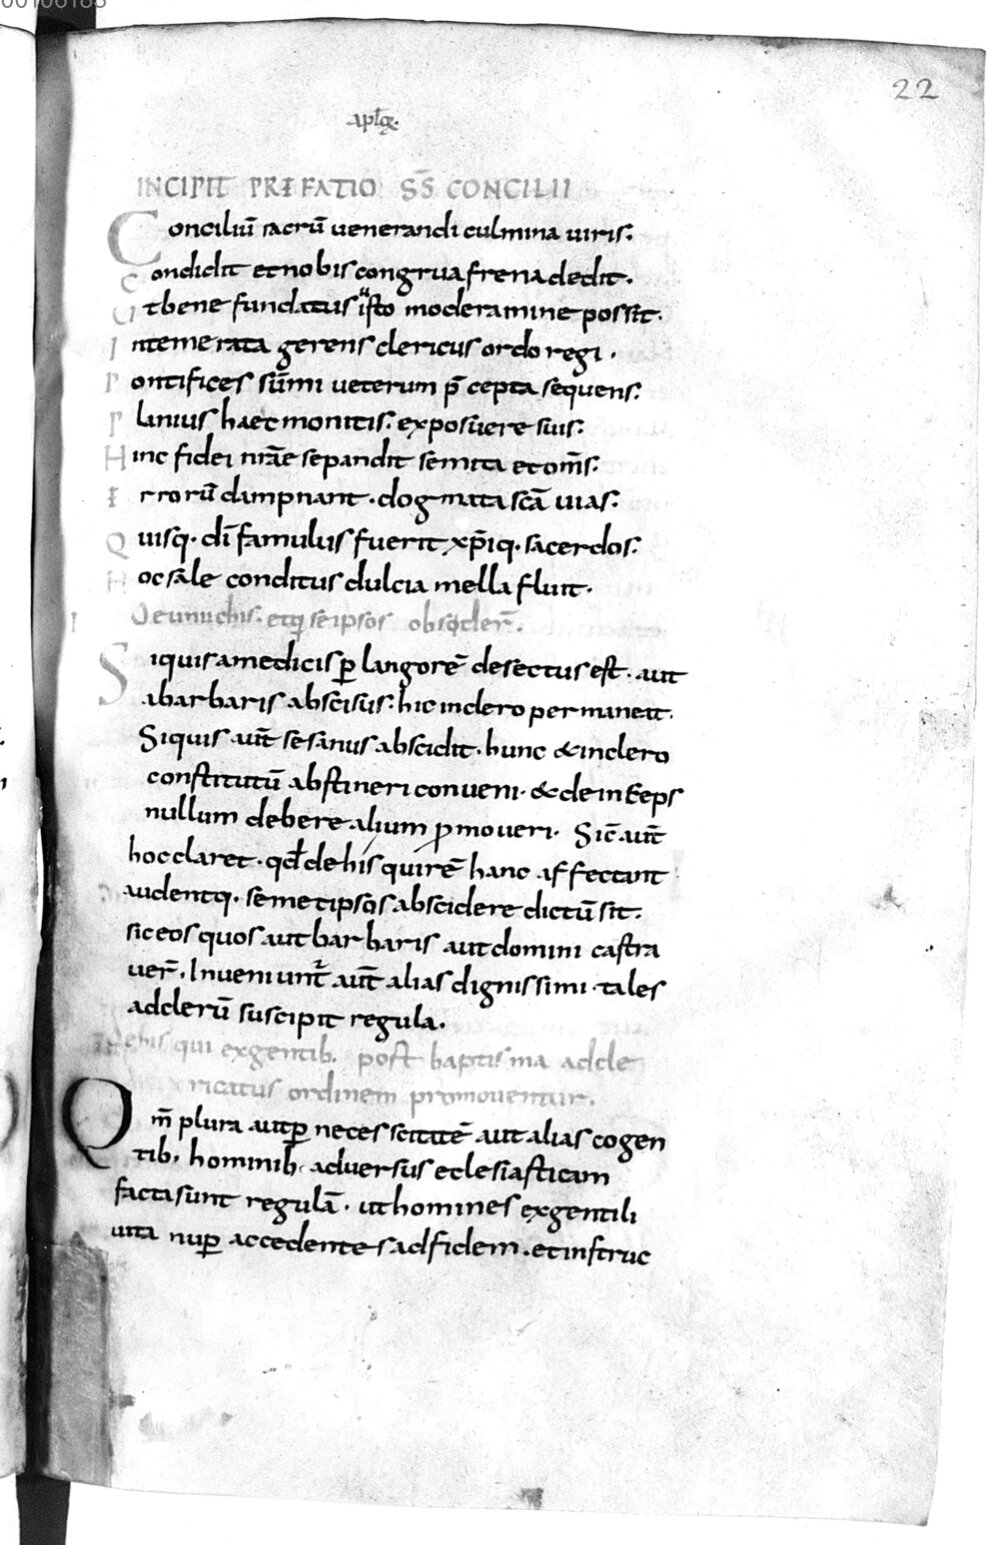 22
INCIPIT PREFATIO SS̄ CONCILII
Conciliū sacrū uenerandi culmina uiris:
Condidit et nobis congrua frena dedit.
Ut bene fundatus isto moderamine possit.
Intemerata gerens clericus ordo regi.
Pontifices sūmi ueterum p̄cepta sequens:
Planius haec monitis: exposuere suis:
Hinc fidei nr̄ae se pandit semita et om̄s:
Errorū dampnant. dogmata scā uias:
Quisq. dī famulus fuerit xp̄iq. sacerdos:
Hoc sale conditus dulcia mella fluit.
I De eunuchis: et q seipsos abscider̄.
Siquis a medicis ꝑ langorē desectus est. aut
a barbaris abscisus: hic inclero permaneat.
Siquis aūt se sanus abscidit. hunc & inclero
constitutū abstineri conueni. & deinceps
nullum debere alium promoueri. Sic̄ aūt
hoc claret. qd̄ de his qui rē hanc affectant
audentq. semetipsos abscidere dictū sit.
sic eos quos aut barbaris aut domini castra
uer̄. Inueniunt̄ aūt alias dignissimi. tales
ad clerū suscipit regula.
De his qui ex gentib. post baptisma ad cle
ricatus ordinem promouentur.
Qm̄ plura aut ꝑ necessitatē aut alias cogen
tib. hominib. aduersus eclesiasticam
facta sunt regulā. ut homines ex gentili
uita nuꝑ accedentes ad fidem. et instruc